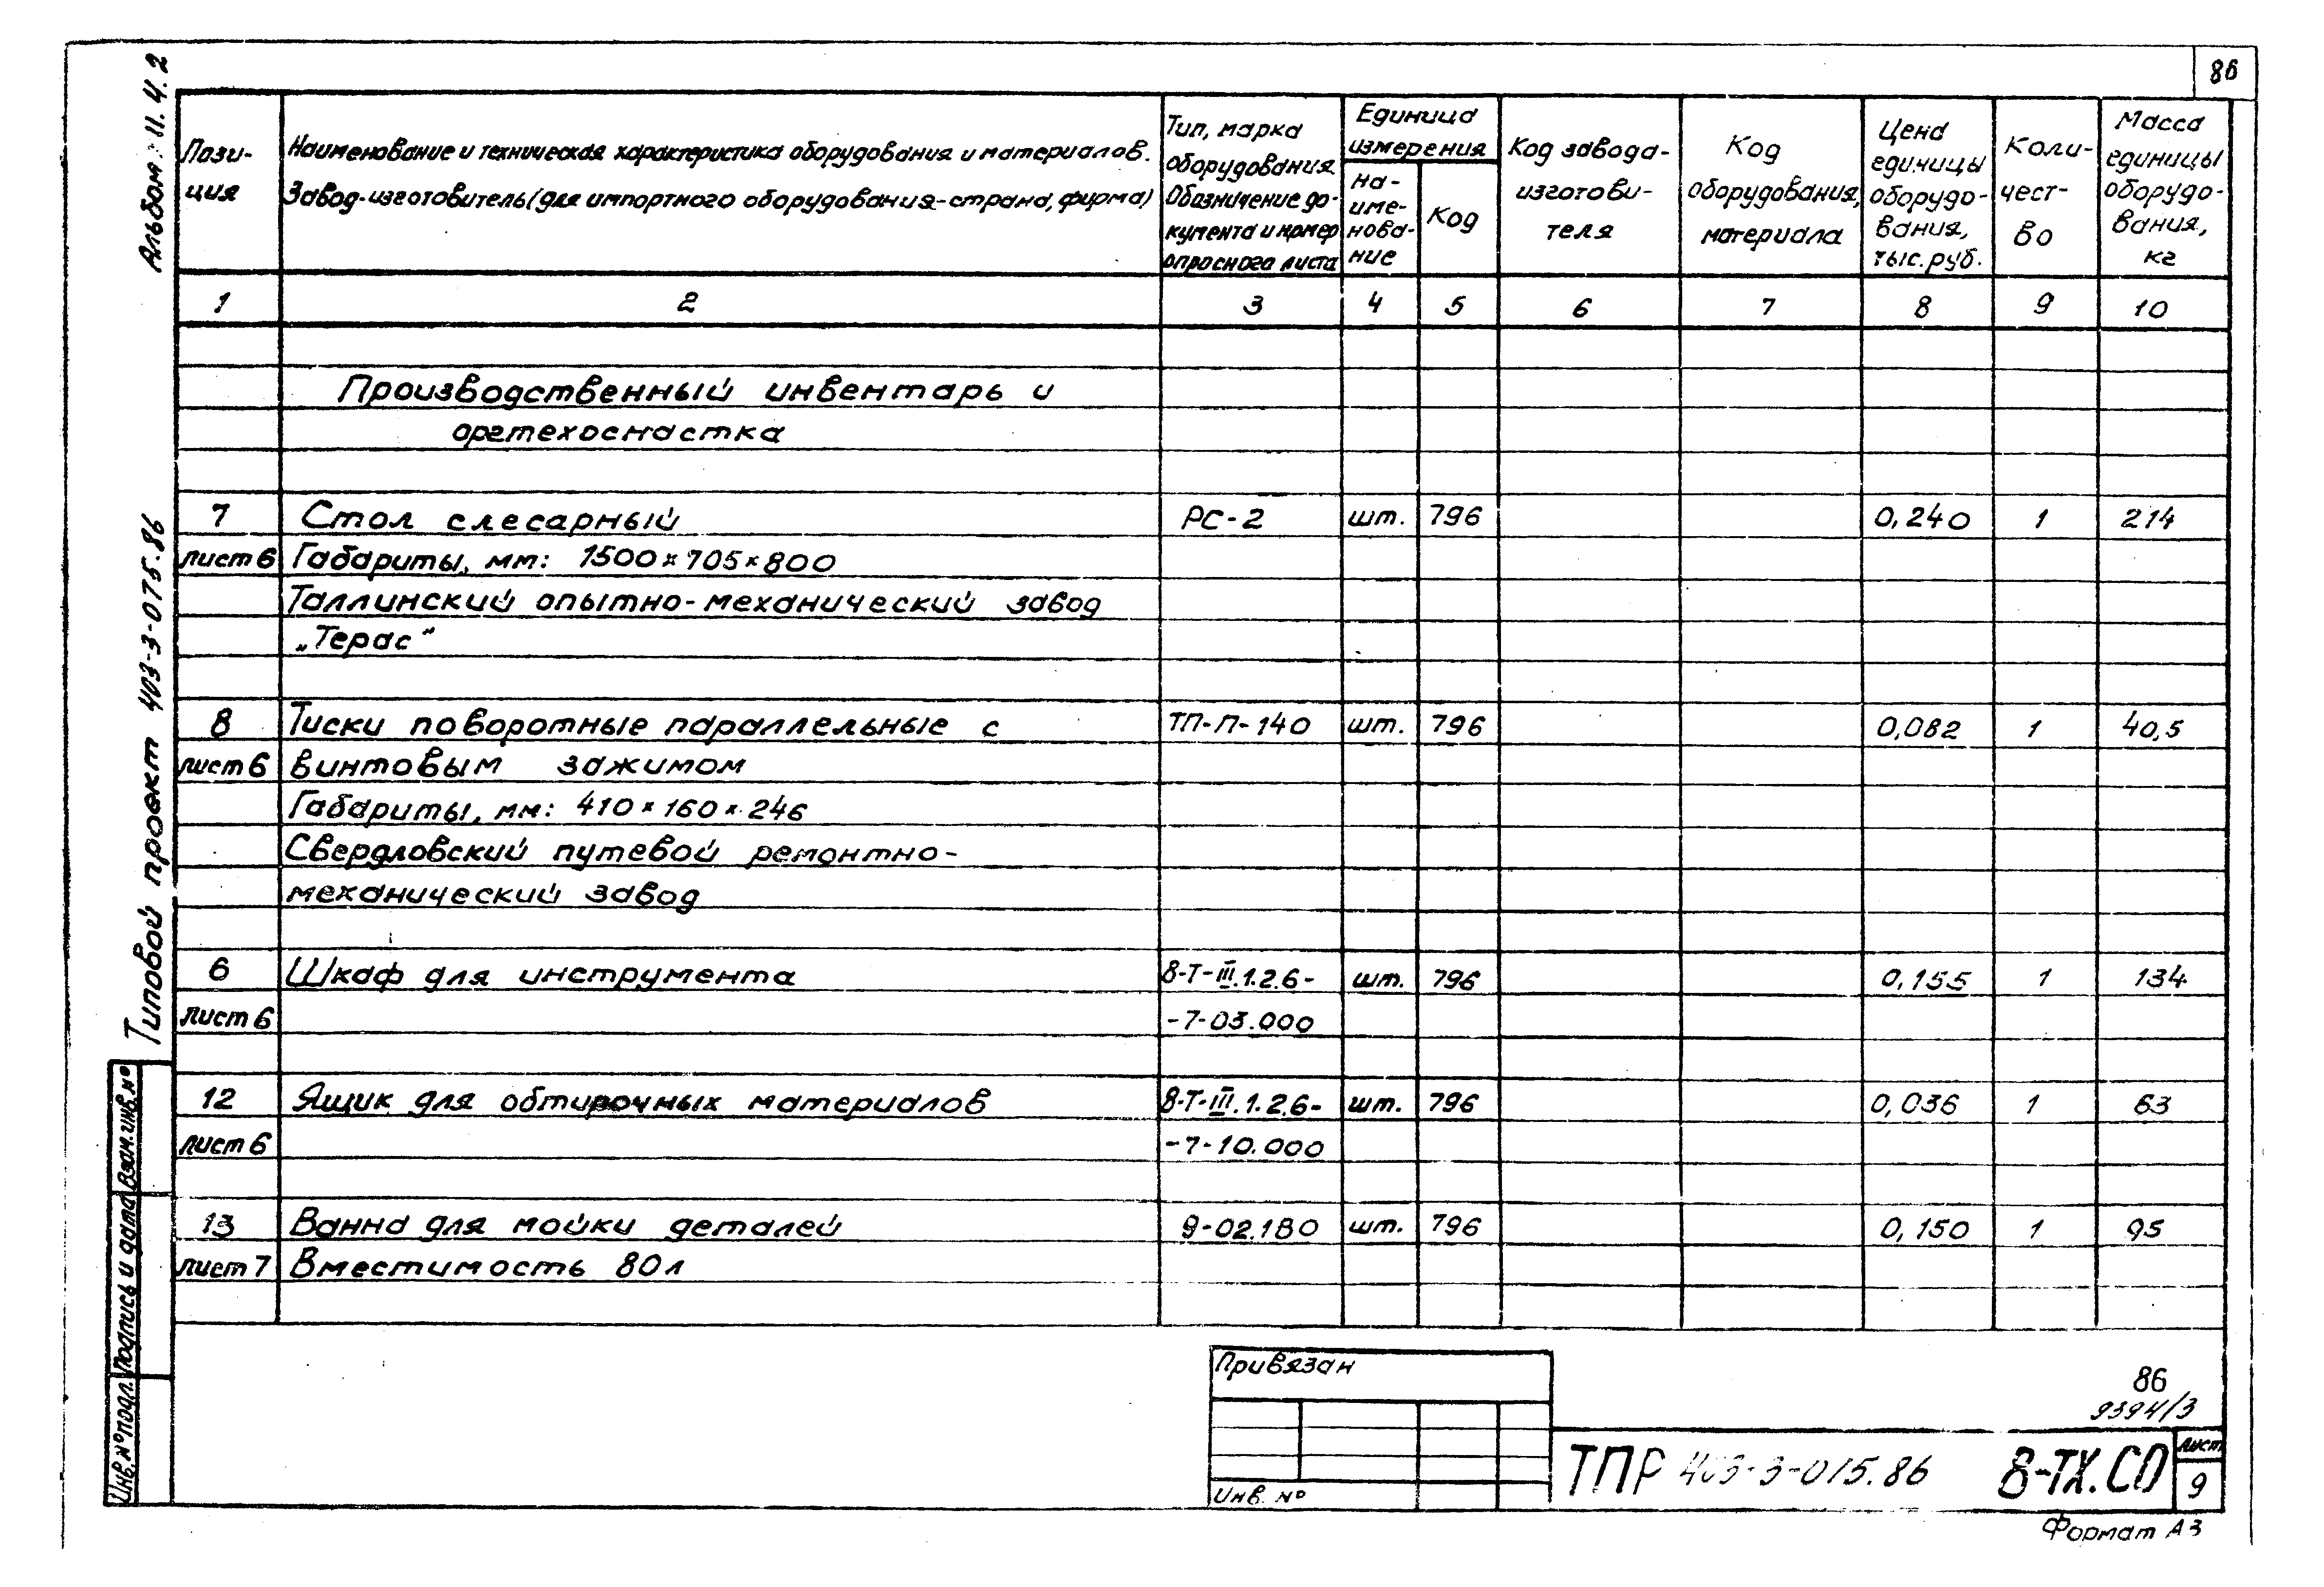 86
Альбом II. Ч. 2
Типовой проект 403-3-075.86
Пози-
ция
Наименование и техническая характеристика оборудования и материалов.
Завод-изготовитель (для импортного оборудования-страна, фирма)
Тип, марка
оборудования
Обозначение до-
кумента и номер
опросного листа
Единица
измерения
На-
име-
нова-
ние
Код
Код завода-
изготови-
теля
Код
оборудования,
материала
Цена
единицы
оборудо-
вания,
тыс. руб.
Коли-
чест-
во
Масса
единицы
оборудо-
вания,
кг
1 2 3 4 5 6 7 8 9 10
Производственный инвентарь и
оргтехоснастка
7 Стол слесарный РС-2 шт. 796 0,240 1 214
лист 6 Габариты, мм: 1500×705×800
Таллинский опытно-механический завод
„Терас"
8 Тиски поворотные параллельные с ТП-П-140 шт. 796 0,082 1 40,5
лист 6 винтовым зажимом
Габариты, мм: 410×160×246
Свердловский путевой ремонтно-
механический завод
6 Шкаф для инструмента 8-Т-III.1.2.6- шт. 796 0,155 1 134
лист 6 -7-03.000
12 Ящик для обтирочных материалов 8-Т-III.1.2.6- шт. 796 0,036 1 63
лист 6 -7-10.000
13 Ванна для мойки деталей 9-02.180 шт. 796 0,150 1 95
лист 7 Вместимость 80л
Взам. инв. №
Подпись и дата
Инв. № подл.
Привязан
Инв. №
86
9394/3
ТПР 403-3-015.86 8-ТХ.СО
Лист
9
Формат А3